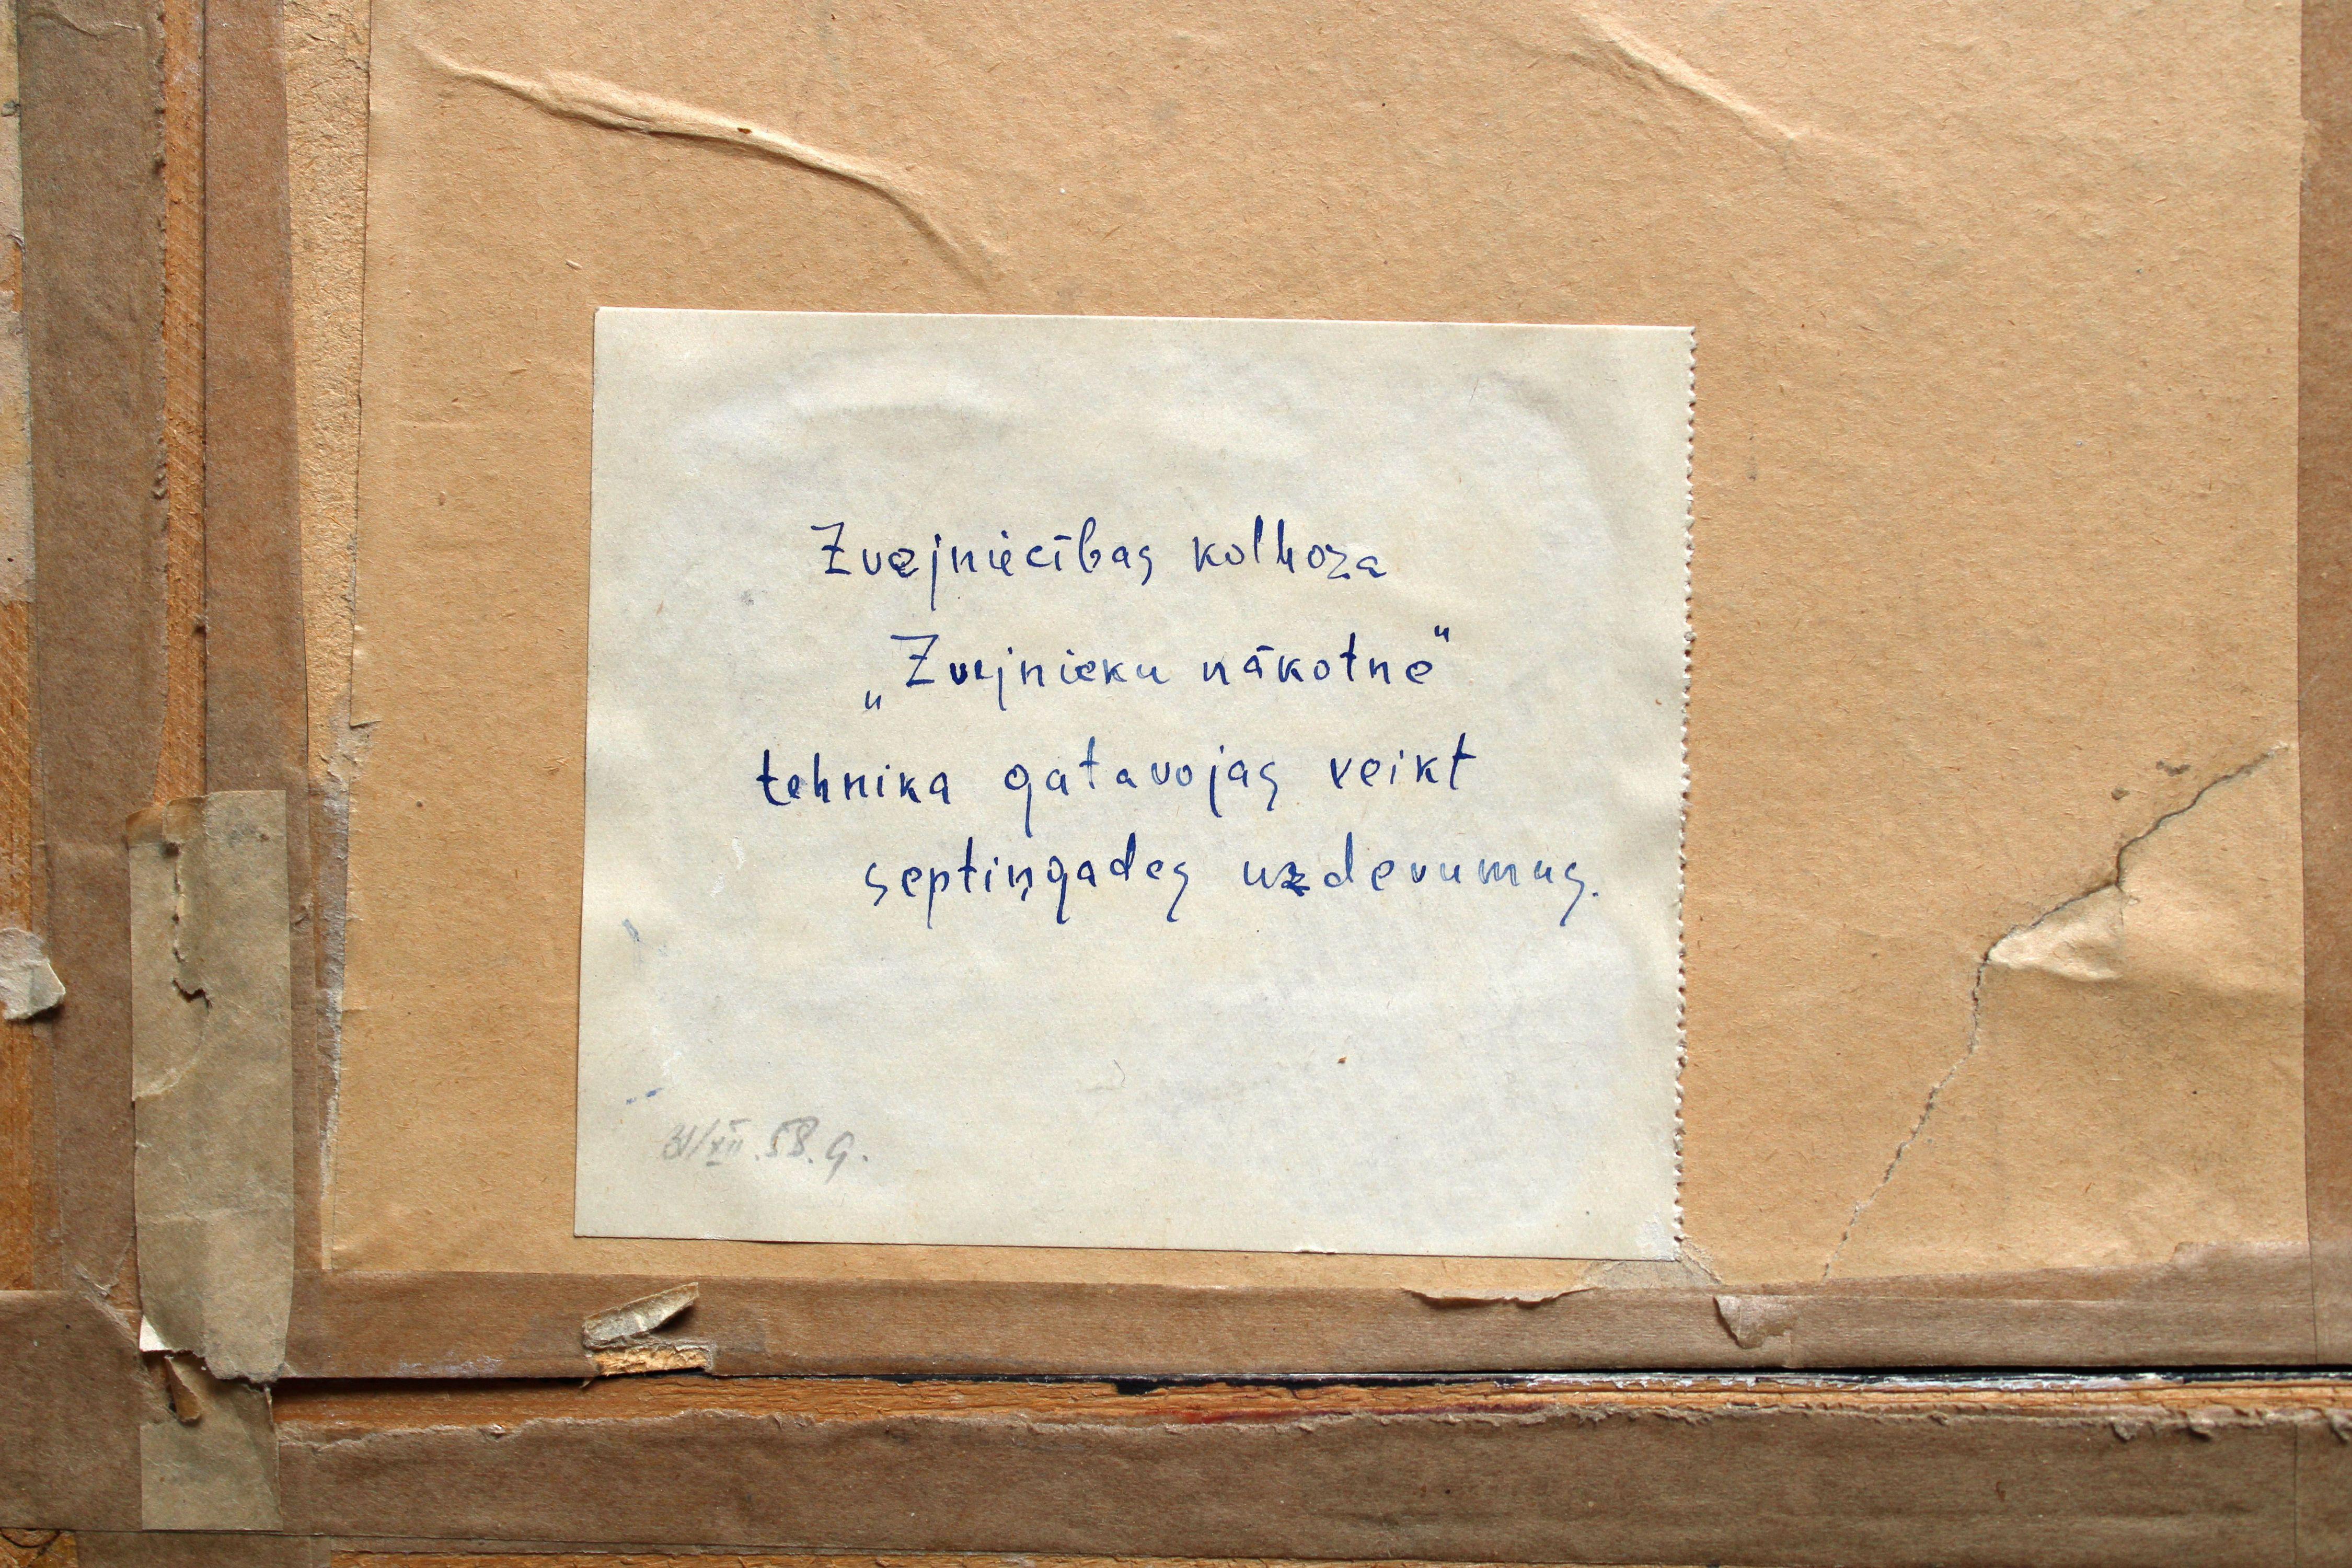 Zvejniecības kolhoza
„Zvejnieku nākotne"
tehnika gatavojas veikt
septiņgades uzdevumus.
31/XII.58.g.